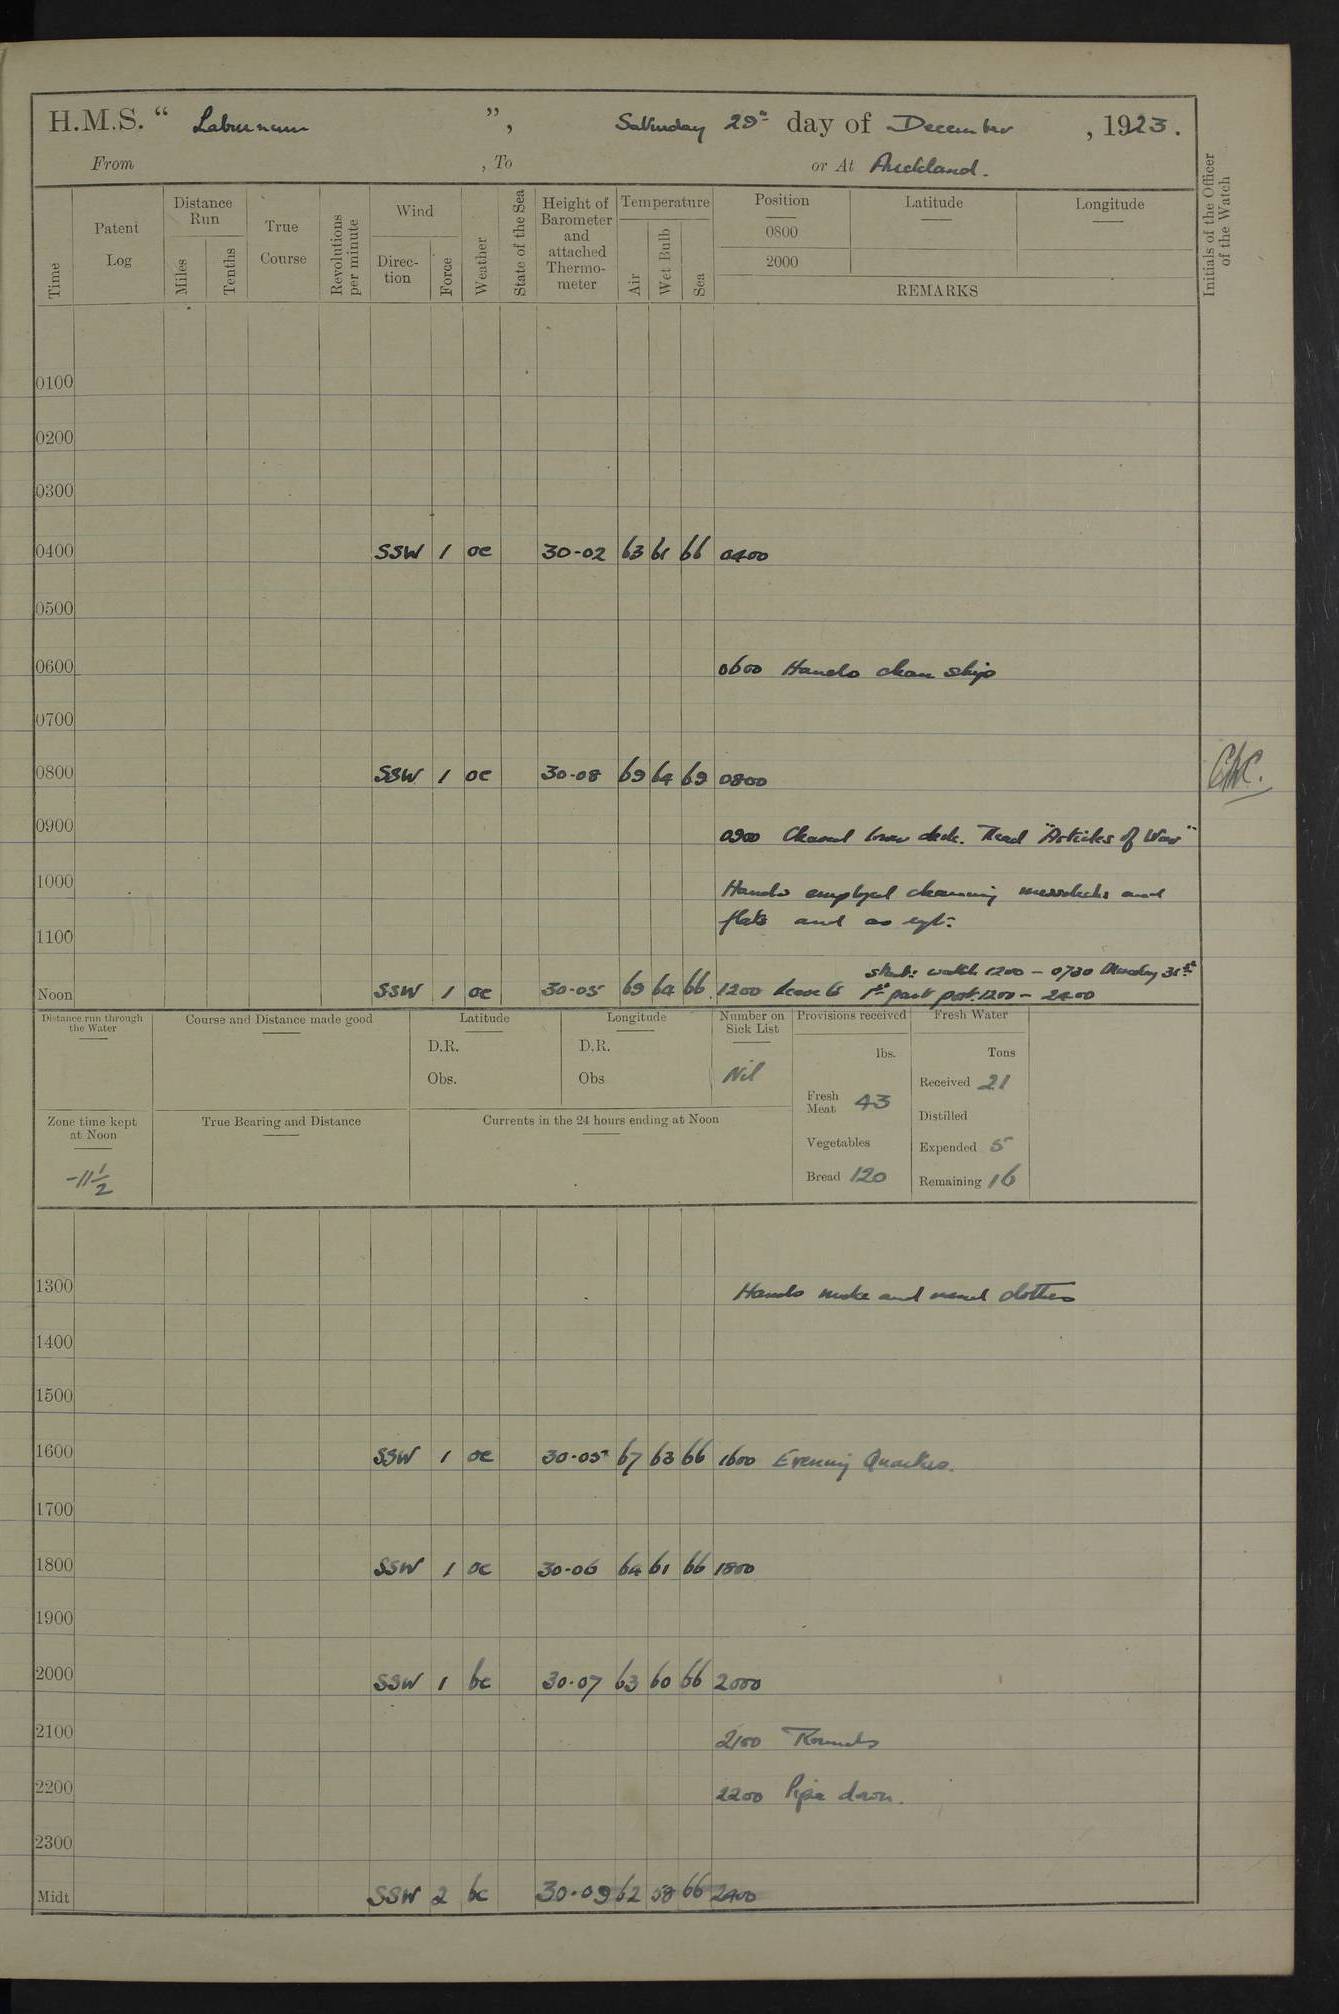 H.M.S. “ Laburnum ”, Saturday 29th day of December, 1923.
From , To or At Auckland.
Time
Patent Log
Distance Run
Miles
Tenths
True Course
Revolutions per minute
Wind
Direction
Force
Weather
State of the Sea
Height of Barometer and attached Thermometer
Temperature
Air
Wet Bulb
Sea
Position
Latitude
Longitude
0800
2000
REMARKS
Initials of the Officer of the Watch
0100
0200
0300
0400 SSW 1 oc 30-02 63 61 66 0400
0500
0600 0600 Hands clean ship
0700
0800 SSW 1 oc 30-08 69 64 69 0800
0900 0900 Cleared lower deck. Read "Articles of War"
1000 Hands employed cleaning messdecks and
flats and as
1100
watch 1200 - 0730 Monday 31st
Noon SSW 1 oc 30-05 69 64 66 1200 Leave to 1st part port: 1200 - 2200
Distance run through the Water
Course and Distance made good
Latitude
D.R.
Obs.
Longitude
D.R.
Obs
Number on Sick List
Nil
Provisions received
lbs.
Fresh Meat 43
Vegetables
Bread 120
Fresh Water
Tons
Received 21
Distilled
Expended 5
Remaining 16
Zone time kept at Noon
-11 1/2
True Bearing and Distance
Currents in the 24 hours ending at Noon
1300 Hands make and mend clothes
1400
1500
1600 SSW 1 oc 30-05 67 63 66 1600 Evening Quarters.
1700
1800 SSW 1 oc 30-06 64 61 66 1800
1900
2000 SSW 1 bc 30-07 63 60 66 2000
2100 2100 Rounds
2200 2200 Pipe down.
2300
Midt SSW 2 bc 30-09 62 58 66 2400